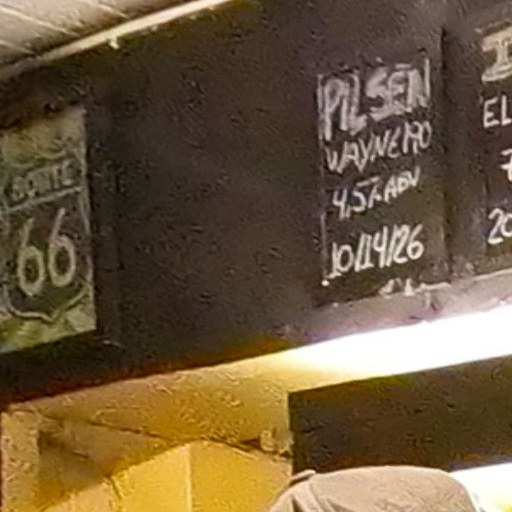 ROUTE
66
PILSEN
WAYNERO
4,5% ABV
10/14/26
I
EL
7
20